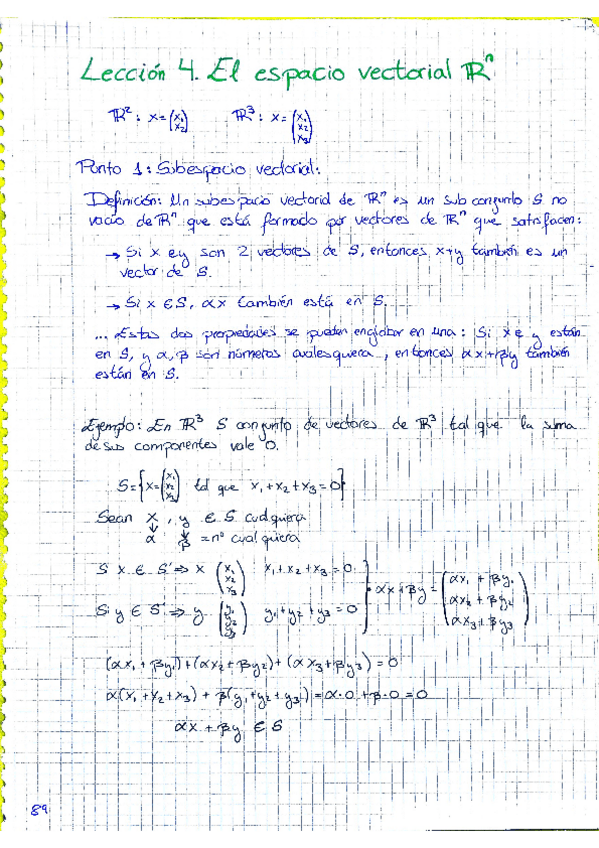 Lección 4. El espacio vectorial ℝⁿ
ℝ²: x=(x₁ x₂) ℝ³: x=(x₁ x₂ x₃)
Punto 1: Subespacio vectorial:
Definición: Un subespacio vectorial de ℝⁿ es un subconjunto S no
vacío de ℝⁿ que está formado por vectores de ℝⁿ que satisfacen:
→ Si x e y son 2 vectores de S, entonces x+y también es un
vector de S.
→ Si x ∈ S, αx también está en S.
... Estas dos propiedades se pueden englobar en una: Si x e y están
en S, y α, β son números cualesquiera, entonces αx+βy también
están en S.
Ejemplo: En ℝ³ S conjunto de vectores de ℝ³ tal que la suma
de sus componentes vale 0.
S={x=(x₁ x₂ x₃) tal que x₁+x₂+x₃=0}
Sean x, y ∈ S cualquiera
α β = nº cualquiera
Si x ∈ S ⇒ x (x₁ x₂ x₃) x₁+x₂+x₃=0
αx+βy = (αx₁+βy₁ αx₂+βy₂ αx₃+βy₃)
Si y ∈ S ⇒ y (y₁ y₂ y₃) y₁+y₂+y₃=0
(αx₁+βy₁)+(αx₂+βy₂)+(αx₃+βy₃)=0
α(x₁+x₂+x₃)+β(y₁+y₂+y₃)=α·0+β·0=0
αx+βy ∈ S
89